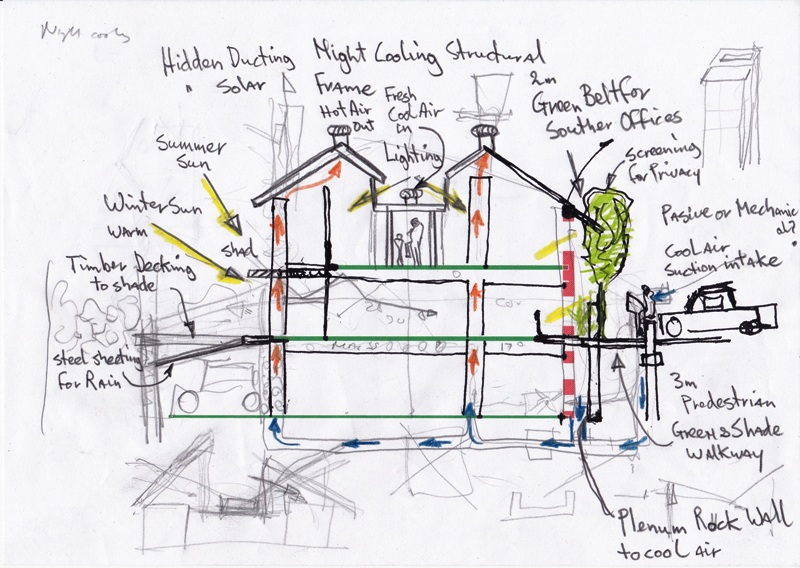 Night cooling
Hidden Ducting
" Solar
Night Cooling Structural
Frame
Hot Air
out
Fresh
Cool Air
in
Lighting
2m
Green Belt for
Souther Offices
Screening
for Privacy
Summer
Sun
Winter Sun
warm
Shad
Timber Decking
to shade
Steel sheeting
for Rain
Pasive or Mechanic
al?
Cool Air
Suction intake
3m
Predestrian
Green & Shade
walkway
Plenum Rock Wall
to cool air